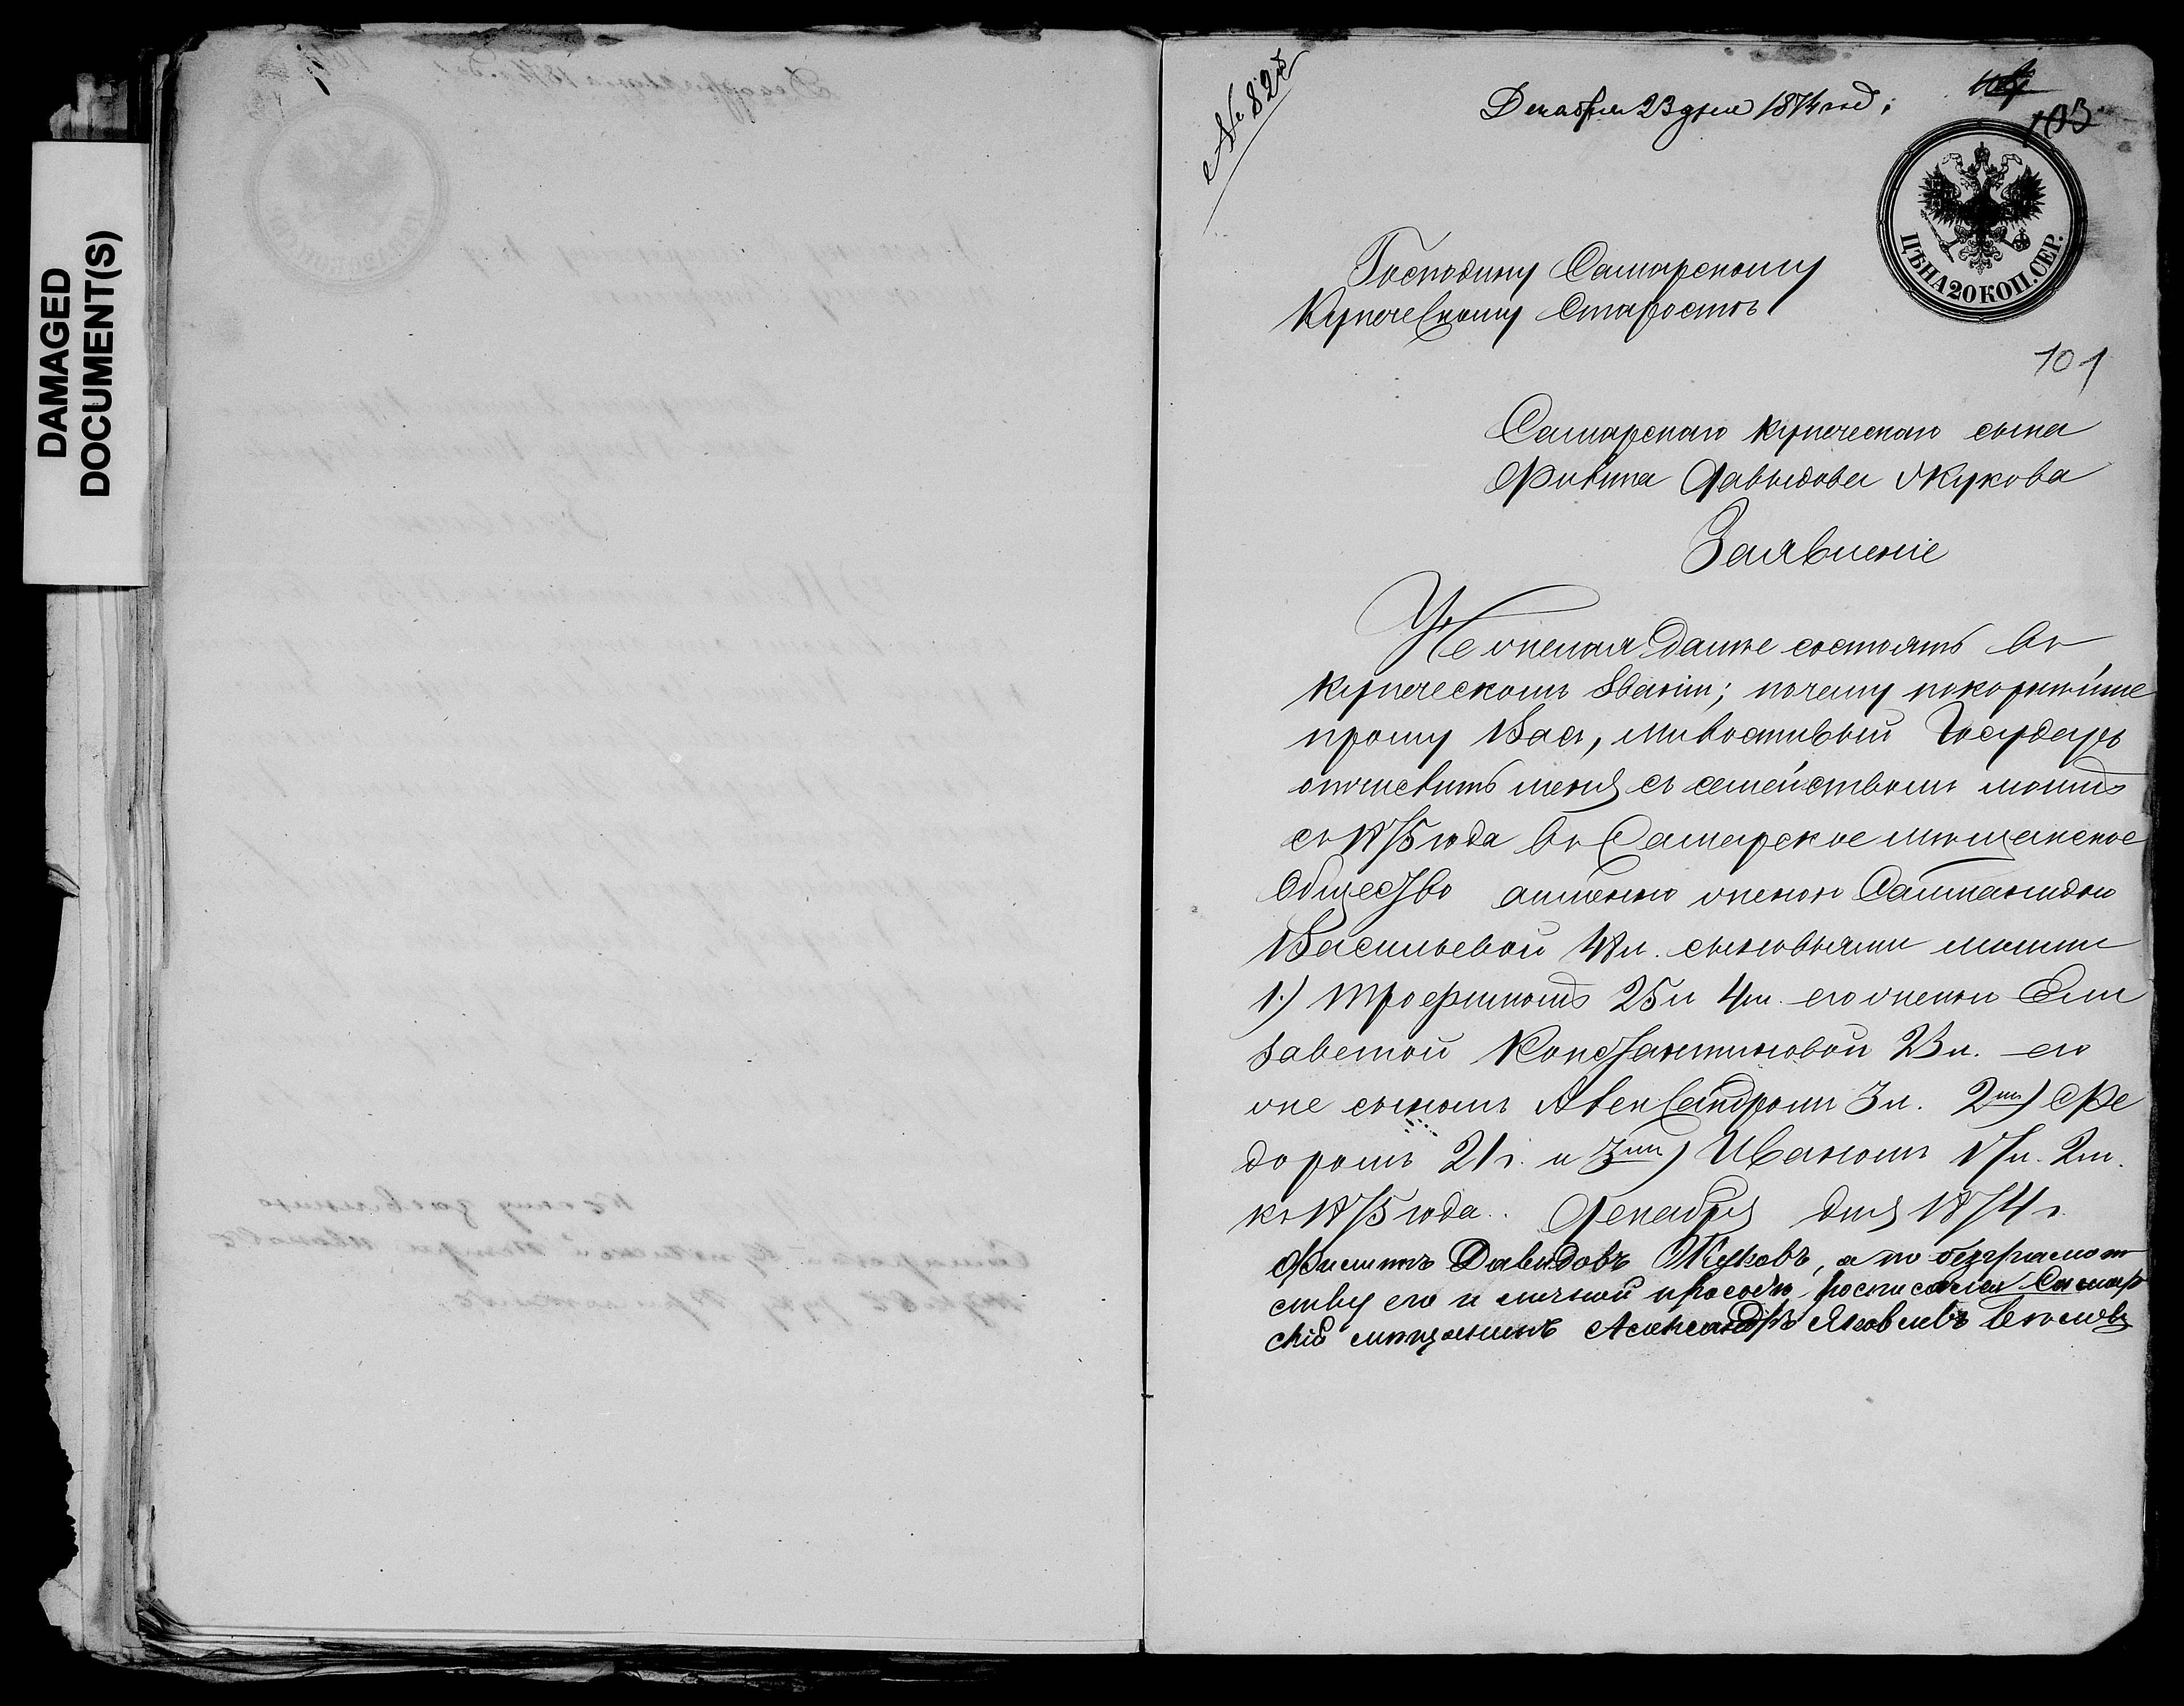 DAMAGED
DOCUMENT(S)
Декабря 23 дня 1874 год.
103
ЦѢНА 20 КОП. СЕР.
Господину Самарскому
Купеческому Старостѣ
101
Самарскаго купеческаго сына
Филипа Давыдова Жукова
Заявленіе
Не желая далѣе состоять въ
купеческомъ званіи; почему покорнѣйше
прошу Васъ, милостивый Государь
отчислить меня съ семействомъ моимъ
съ 1875 года въ Самарское мѣщанское
Общество а именно женою
Васильевой 48 л. сыновьями моими
1.) Трофимомъ 25 л 4 м. его женой Ели
заветой Константиновой 23 л. его
же сыномъ Александромъ 3 л. 2мъ) Фе
доромъ 21 г. и 3мъ) Иваномъ 17 л. 2 м.
къ 1875 года. Декабря дня 1874 г.
Филиппъ Давидовъ Жуковъ, а по безграмот
ству его и личной просьбѣ росписался Самар
скій мѣщанинъ Александръ Яковлевъ